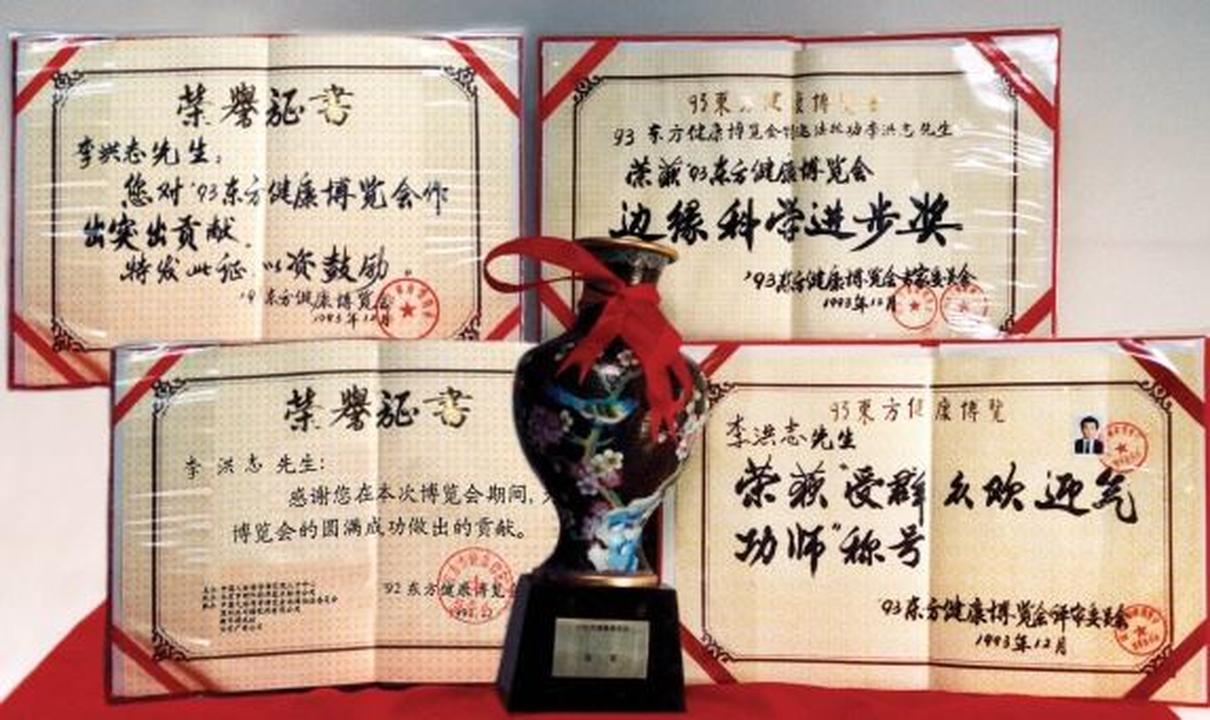 荣誉证书
李洪志先生：
您对'93东方健康博览会作
出突出贡献。
特发此证.以资鼓励。
东方健康博览会
1993年12月
93 东方健康博览会 法轮功李洪志先生
荣获'93东方健康博览会
边缘科学进步奖
'93东方健康博览会专家委员会
1993年12月
荣誉证书
李洪志 先生:
感谢您在本次博览会期间,
博览会的圆满成功做出的贡献。
'92 东方健康博览
93東方健康博览
李洪志先生
荣获"受群众欢迎气
功师"称号
'93东方健康博览会评审委员会
1993年12月